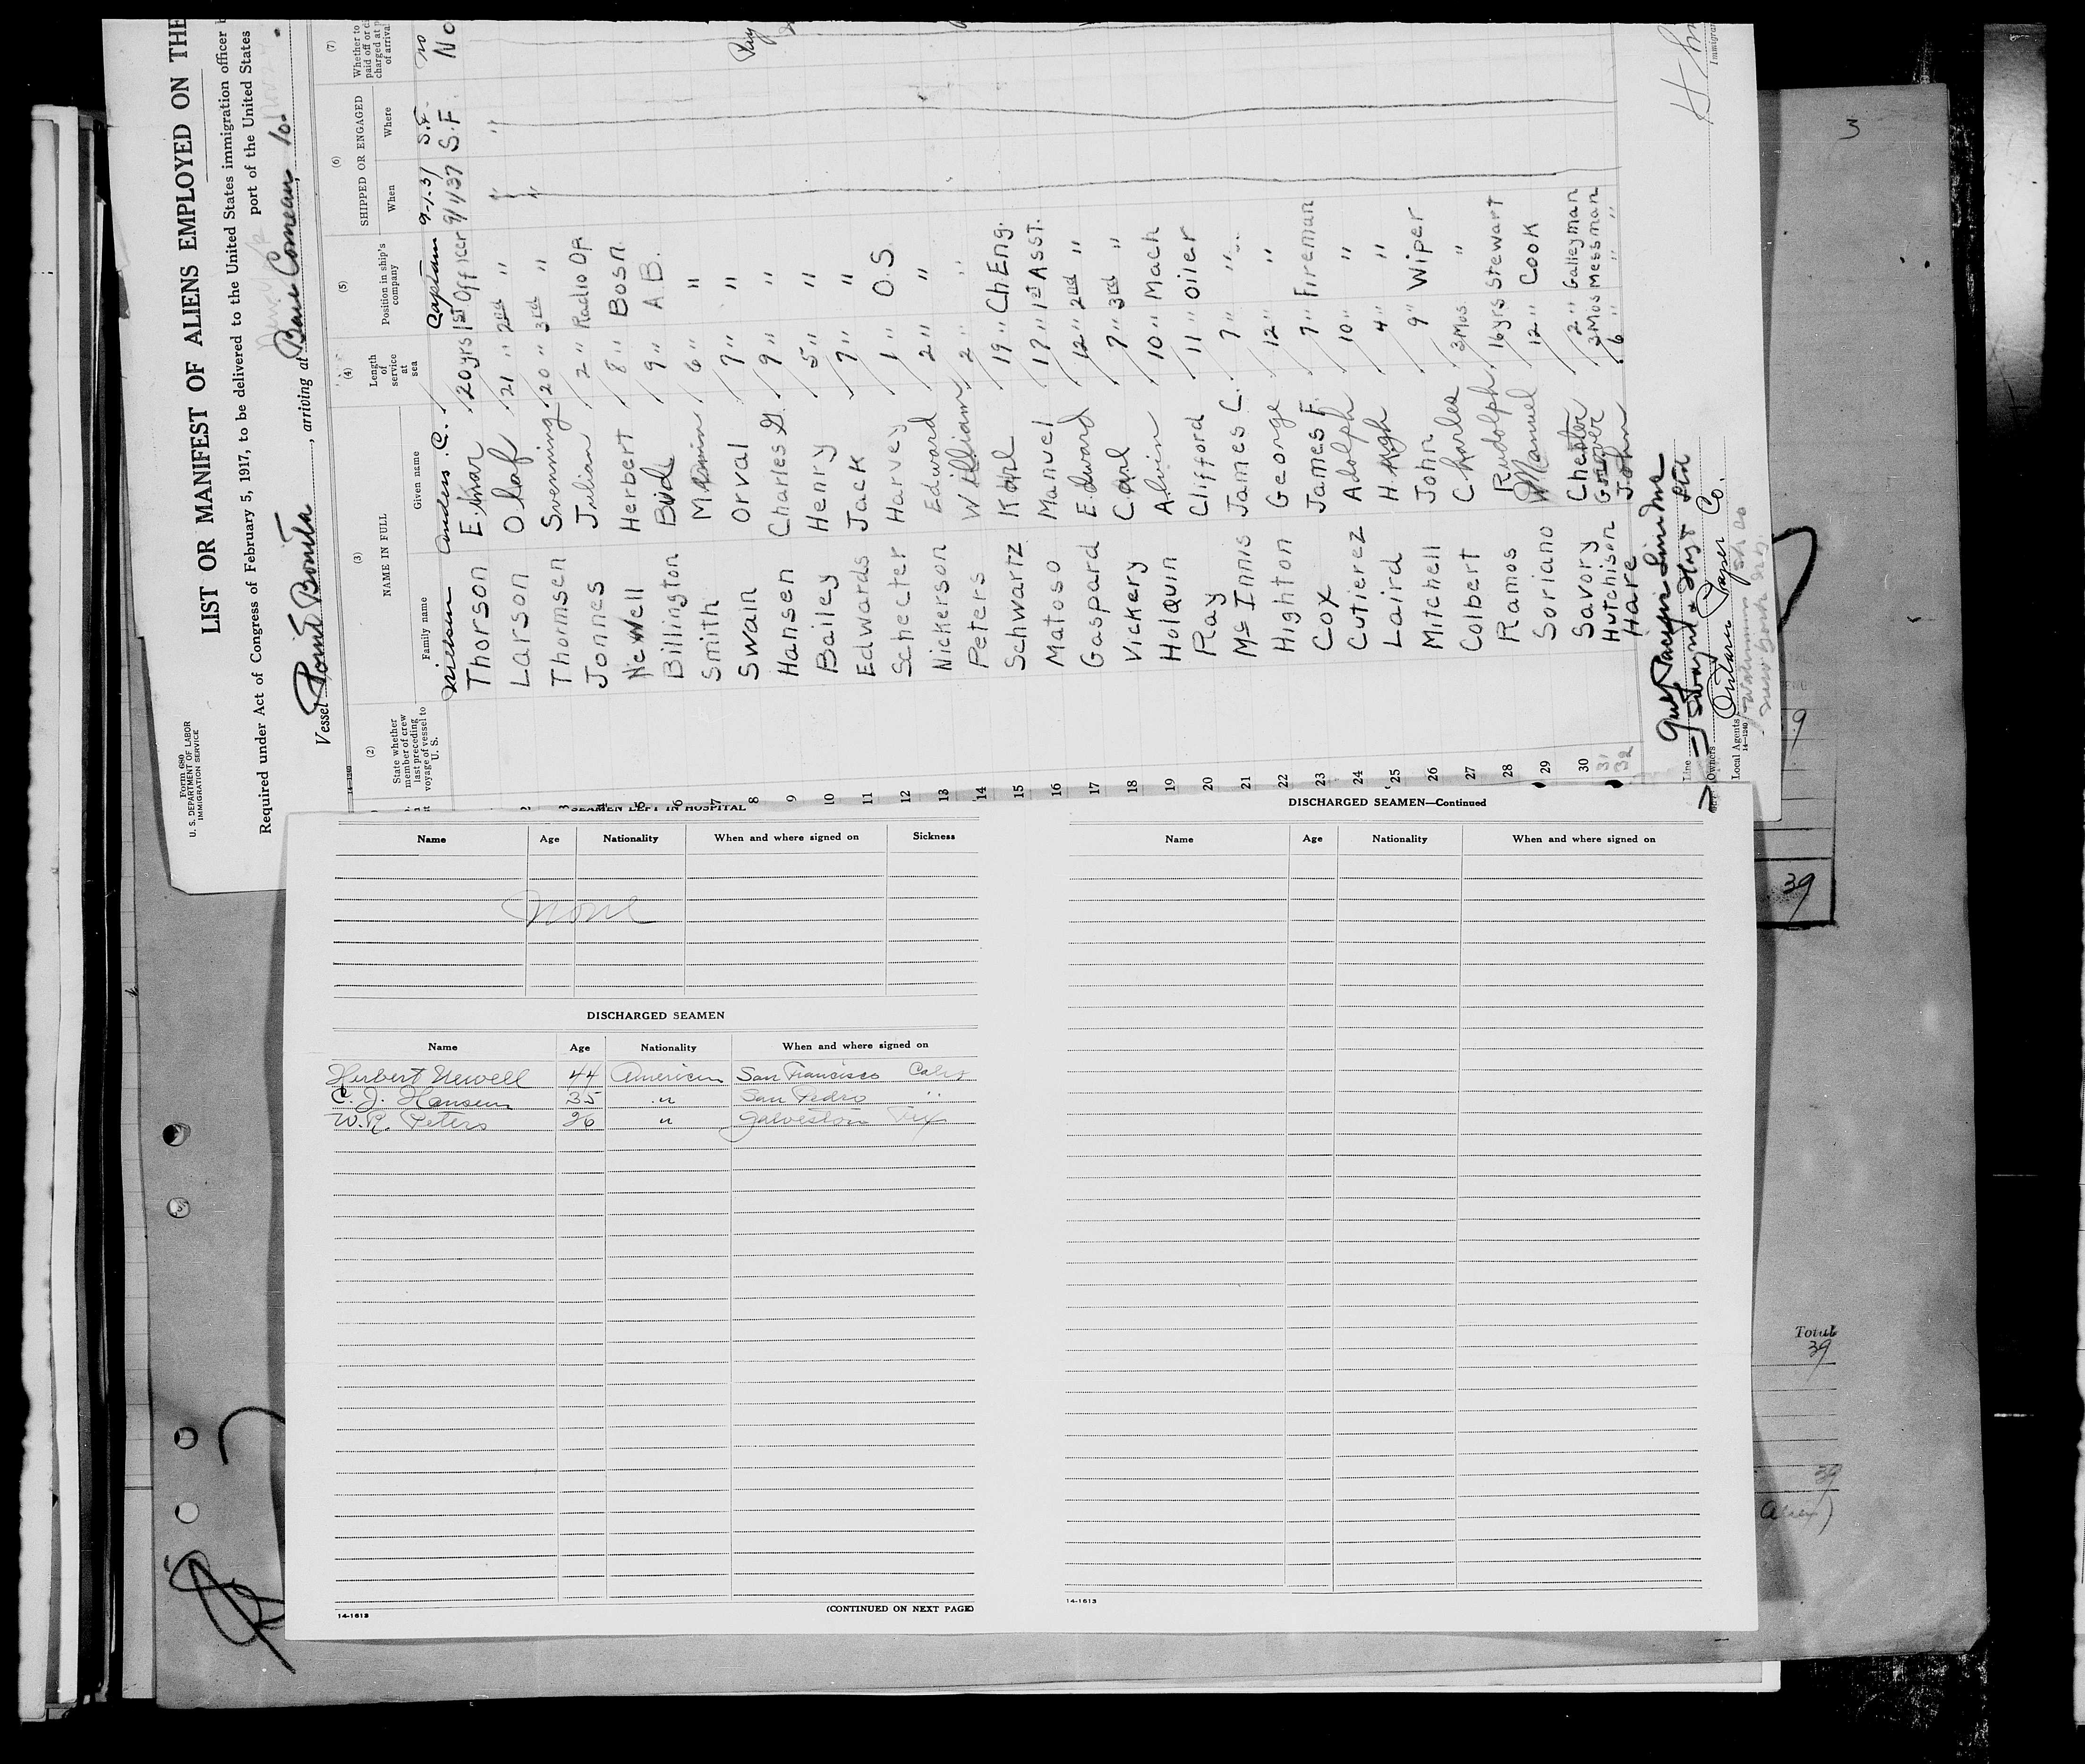 Form 680
U. S. DEPARTMENT OF LABOR
IMMIGRATION SERVICE
LIST OR MANIFEST OF ALIENS EMPLOYED ON THE
Required under Act of Congress of February 5, 1917, to be delivered to the United States immigration officer
port of the United States
Vessel Point Bonita, arriving at Baie Comeau
(2) (3) (4) (5) (6) (7)
State whether member of crew last preceding voyage of vessel to U. S.
NAME IN FULL
Family name Given name
Length of service at sea
Position in ship's company
SHIPPED OR ENGAGED
When Where
Whether to
of arrival
Nielsen Anders C. Captain 9-1-37 S.F. no
Thorson Elmar 20 yrs 1st Officer 9/1/37 S.F. No
2 Larson Olaf 21 " 2nd " " "
3 Thormsen Svenning 20 " 3rd " "
4 Jonnes Julian 2 " Radio Op
5 Newell Herbert 8 " Bosn.
6 Billington Bud 9 " A B.
7 Smith 6 " "
8 Swain Orval 7 " "
9 Hansen Charles G 9 " "
10 Bailey Henry 5 " "
11 Edwards Jack 7 " "
12 Schecter Harvey 1 " O.S.
13 Nickerson Edward 2 " "
14 Peters William 2 " "
15 Schwartz Karl 19 " Ch Eng.
16 Matoso Manuel 17 " 1st Asst.
17 Gaspard Edward 12 " 2nd "
18 Vickery Carl 7 " 3rd "
19 Holquin Alvin 10 " Mach
20 Ray Clifford 11 " Oiler
21 Mc Innis James C. 7 " "
22 Highton George 12 " "
23 Cox James F. 7 " Fireman
24 Cutierez Adolph 10 " "
25 Laird Hugh 4 " "
26 Mitchell John 9 " Wiper
27 Colbert Charles 3 Mos. "
28 Ramos Rudolph 16 yrs Stewart
29 Soriano Manuel 12 " Cook
30 Savory Chester 2 " Galleyman
31 Hutchison 3 Mos Messman
32 Hare John 6 " "
Line Gulf Pacific Line Inc
Owners Swayne & Hoyt Ltd
Local Agents Ontario Paper Co.
14-1240
SEAMEN LEFT IN HOSPITAL
Name Age Nationality When and where signed on Sickness
None
DISCHARGED SEAMEN
Name Age Nationality When and where signed on
Herbert Newell 44 American San Francisco Calif
C. J. Hansen 35 " San Pedro "
W. R. Peters 26 " Galveston Tex
14-1613
(CONTINUED ON NEXT PAGE)
DISCHARGED SEAMEN—Continued
Name Age Nationality When and where signed on
14-1613
3
9
39
Total
39
39